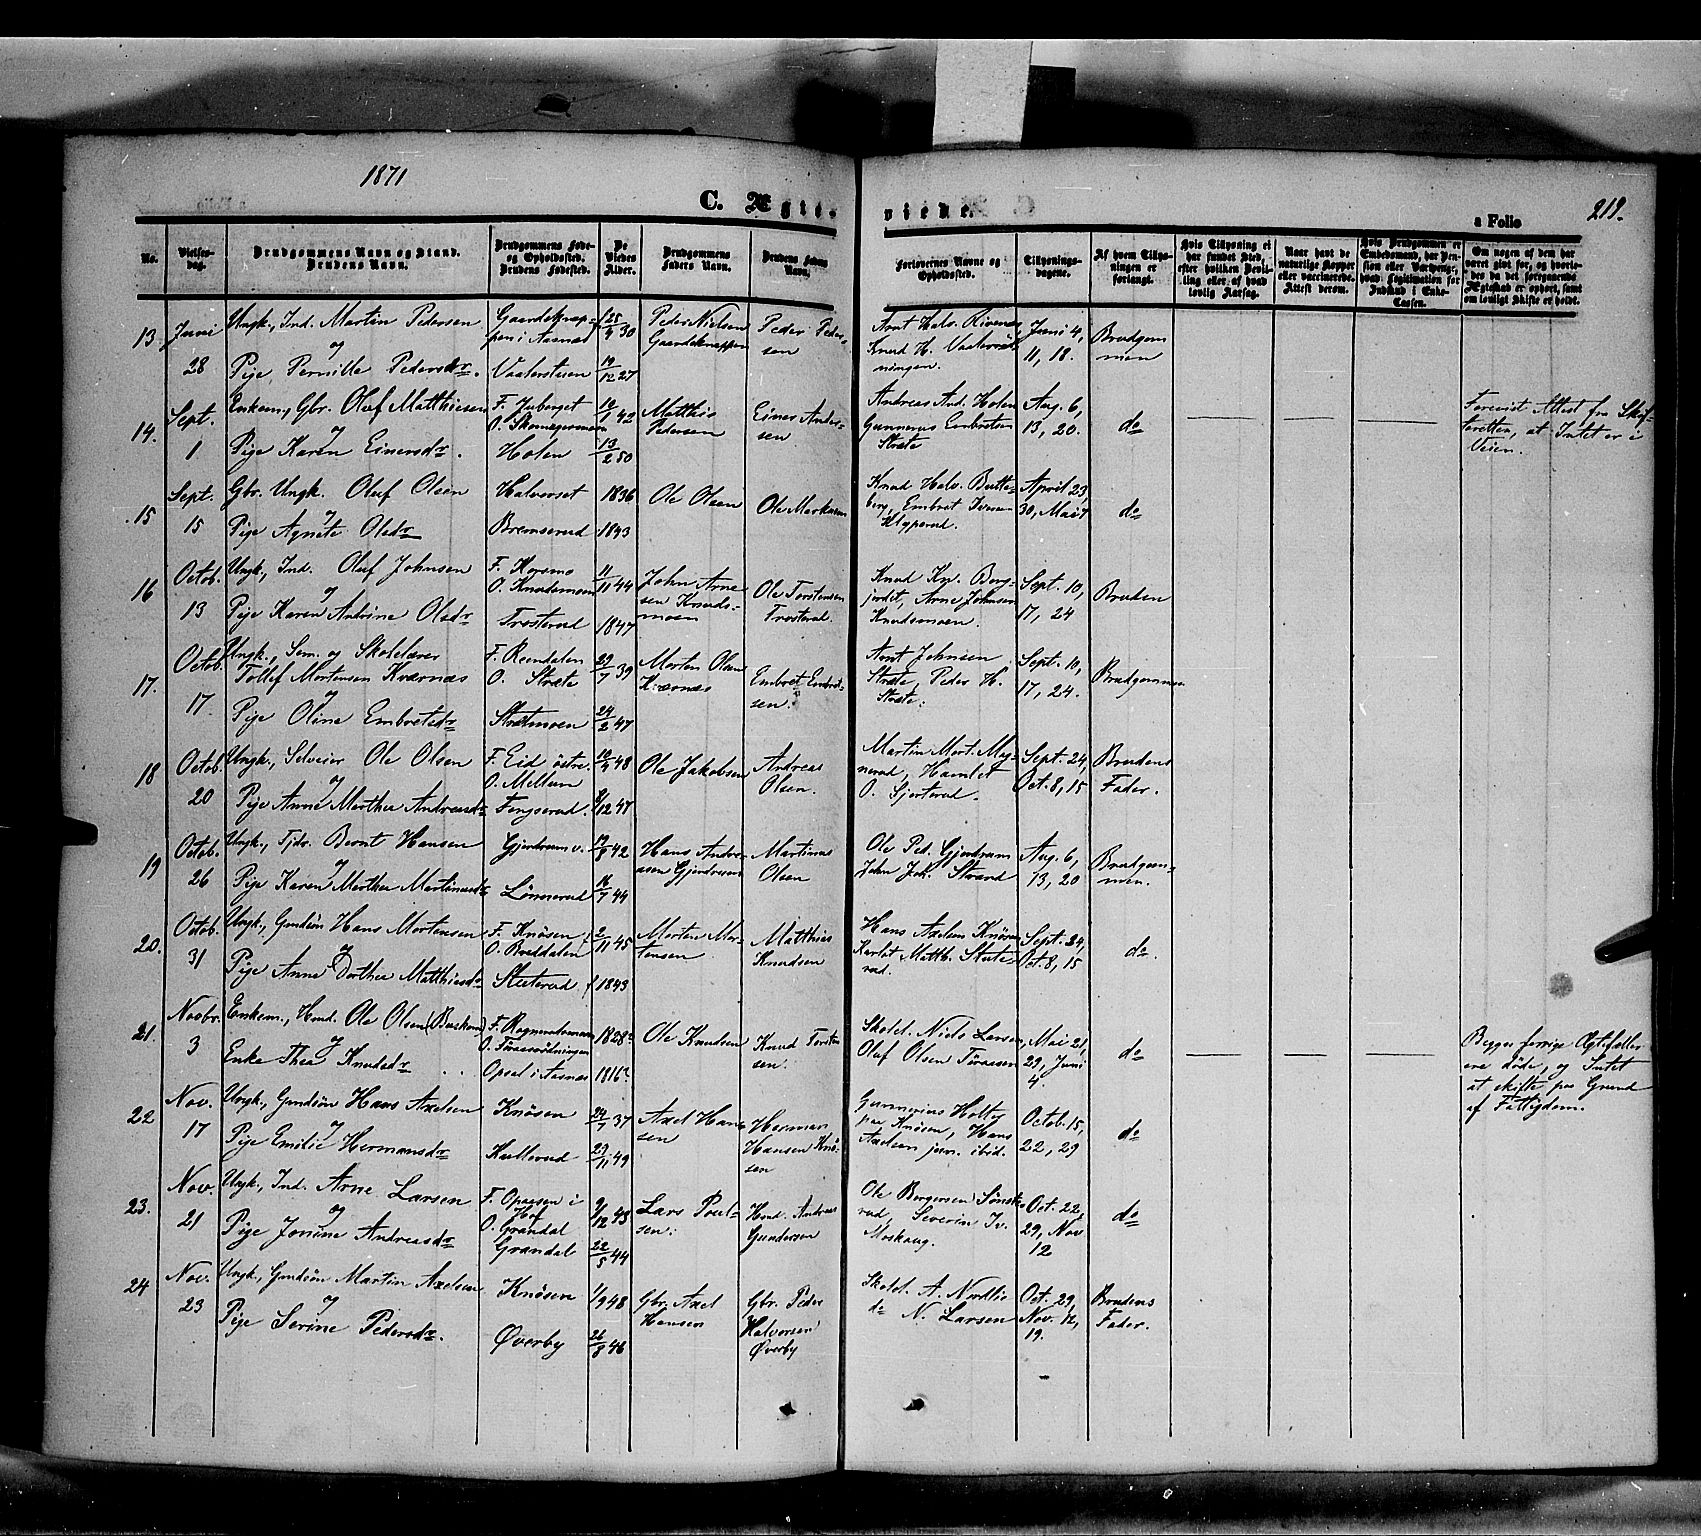 1871
C. Ægte-
viede.
a Folio
219.
No.
Vielses-
dag.
Brudgommens Navn og Stand.
Brudens Navn.
Brudgommens Føde-
og Opholdssted.
Brudens Fødested.
De
Viedes
Alder.
Brudgommens
Faders Navn.
Brudens Faders
Navn.
Forlovernes Navne og
Opholdssted.
Tillysnings-
dagene.
Af hvem Tillys-
ningen er
forlangt.
Hvis Tillysning ei
har fundet Sted,
efter hvilken Bevil-
ling eller af hvad
lovlig Aarsag.
Naar havt de
naturlige Kopper
eller vaccinerede.
Attest derom.
Hvis Brudgommen er
Embedsmand, har Pen-
sion eller Vartpenge,
hvad Legitimation for
Indskud i Enke-
Cassen.
Om nogen af dem har
været givt før, og hvorle-
des da det foregaaende
Ægteskab er ophørt, samt
om lovligt Skifte er holdt.
13. Juni 28
Ungk., Ind. Martin Pedersen
og
Pige Pernille Pedersdr.
Gaardeknap-
pen i Aasnæs
Vaalerstuen
25/4 30
19/12 27
Peder Nielsen
Gaardeknappen
Peder Peder-
sen
Arnt Halv. Rivenæs
Knud H. Vaalersæt-
ningen.
Juni 4,
11, 18.
Brudgom
men
14. Sept. 1
Enkem., Gbr. Oluf Matthiesen
og
Pige Karen Einersdr.
F. Juberget
O. Skomagermoen
Holen
42
13/2 50
Matthis
Pedersen
Einer Ander-
sen.
Andreas And. Holen
Gunnerus Embretsen
Stræte
Aug. 6,
13, 20.
do
Forevist Attest fra Skif-
teretten, at Intet er i
Veien.
15 Sept. 15
Gbr. Ungk. Oluf Olsen
og
Pige Agnete Olsdr
Halverset
Bremserud
1836
1843
Ole Olsen
Ole Markusen
Knud Halv. Butte-
berg, Embret Iversen
Klyperud.
April 23,
30, Mai 7
do
16 Octob. 13
Ungk., Ind. Oluf Johnsen
og
Pige Karen Andrine Olsdr
F. Korsmo
O. Knudsmoen
Trosterud
11/11 44
1847
John Arne
sen Knuds-
moen
Ole Torstensen
Trosterud.
Knud Kn. Berg-
jordet, Arne Johnsen
Knudsmoen.
Sept. 10,
17, 24
Bruden
17. Octob. 17.
Ungk., Sem. og Skolelærer
Tollef Mortensen Kværnæs
og
Pige Oline Embretsdr
F. Rendalen
O. Stræte
Strætmoen
29/7 39
24/2 47
Morten Olsen
Kværnæs
Embret Embret-
sen.
Arnt Johnsen
Stræte, Peder H.
Stræte.
Sept. 10,
17, 24.
Brudgommen
18 Octob. 20
Ungk., Selveier Ole Olsen
og
Pige Anne Marthea Andreasdr
F. Eid østre.
O. Mellum
Fengserud.
48
8/12 47
Ole Jakobsen
Andreas
Olsen.
Martin Mort. Mag-
nerud, Hamlet
O. Gjerterud.
Sept. 24,
Oct. 8, 15
Brudens
Fader.
19 Octob. 26
Ungk., Tjdr. Bernt Hansen
og
Pige Karen Marthea Martinusdr
Gjerdrum v.
Lønnerud
42
16/7 44
Hans Andre-
asen Gjerdrum
Martinus
Olsen
Ole Ped. Gjerdrum
John Joh. Strand
Aug. 6,
13, 20
Brudgom-
men.
20. Octob. 31
Ungk., Gmdsøn Hans Mortensen
og
Pige Anne Dorthea Matthisdr
F. Knøsen
O. Breddalen
Sleterud
2/11 45
1843
Morten Mor-
tensen
Matthias
Knudsen
Hans Axelsen Knøsen
Karlot Matth. Slete-
rud.
Sept. 24,
Oct. 8, 15
do.
21. Novbr. 3
Enkem., Hmd. Ole Olsen (Buskom)
og
Enke Thea Knudsdr
F. Ragnnadsmoen
O. Tøraasædningen
Opsal i Aasnæs
1828
1816
Ole Knudsen
Knud Torsten
sen.
Skolel. Niels Larsen
Oluf Olsen Tøraasen
Mai 21,
29, Juni
4.
do
Begges forrige Ægtefæller
ere døde, og Intet
at skifte paa Grund
af Fattigdom.
22 Nov. 17
Ungk., Gmdsøn Hans Axelsen
og
Pige Emilie Hermansdr
Knøsen
Kullerud
24/7 37
29/11 49
Axel Han
sen
Herman
Hansen Knø-
sen
Gunnerius Holter
paa Knøsen, Hans
Axelsen jun. ibid.
Octob. 15,
22, 29
do
23. Nov. 21
Ungk., Ind. Arne Larsen
og
Pige Jonine Andreasdr
F. Opaasen i
Hof
O. Grandal
Grandal
9/12 45
22/5 44
Lars Poul-
sen.
Hmd. Andreas
Gundersen
Ole Bergersen Sønste
rud, Severin Iv.
Moskaug.
Oct. 22,
29, Nov
12
do
24 Nov. 23
Ungk., Gmdsøn Martin Axelsen
og
Pige Serine Pedersdr.
Knøsen
Øverby
1/9 48
26/8 46
Gbr. Axel
Hansen
Gbr. Peder
Halvorsen
Øverby
Skolel. A. Nordlie
do N. Larsen
Oct. 29,
Nov. 12,
19.
Brudens
Fader.